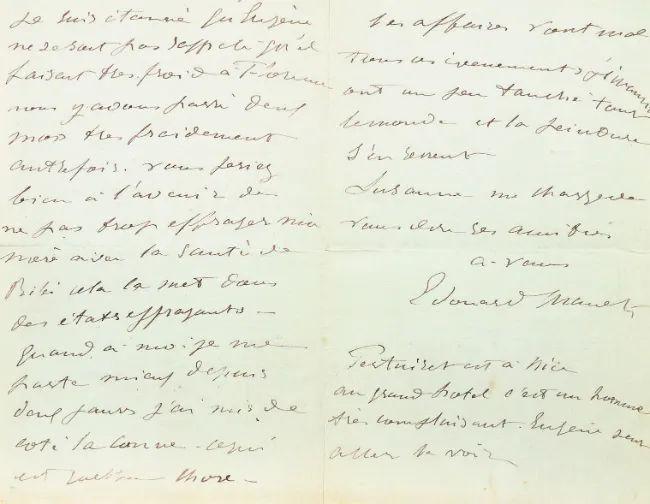 Je suis étonné qu'Eugène
ne se soit pas rappelé qu'il
faisait très froid à Florence
nous y avons passé deux
mois très froidement
autrefois. vous feriez
bien à l'avenir de
ne pas trop effrayer ma
mère avec la santé de
Bibi cela la met dans
des états effrayants -
Quand à moi je me
porte mieux depuis
deux jours j'ai mis de
coté la canne - ce qui
est quelque chose -
Les affaires vont mal
tous ces évenements
ont un peu touché tout
le monde et la peinture
s'en ressent
Suzanne me charge de
vous dire ses amitiés
a vous
Edouard Manet
Pertuiset est à Nice
au grand hotel c'est un homme
très complaisant. Eugène peut
aller le voir